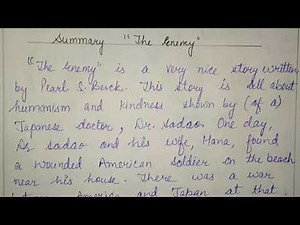 Summary "The Enemy"
"The Enemy" is a very nice story written
by Pearl S. Buck. This story is all about
humanism and kindness shown by (of a)
Japanese doctor, Dr. Sadao. One day,
Dr Sadao and his wife, Hana, found
a wounded American soldier on the beach
near his house. There was a war
between America and Japan at that